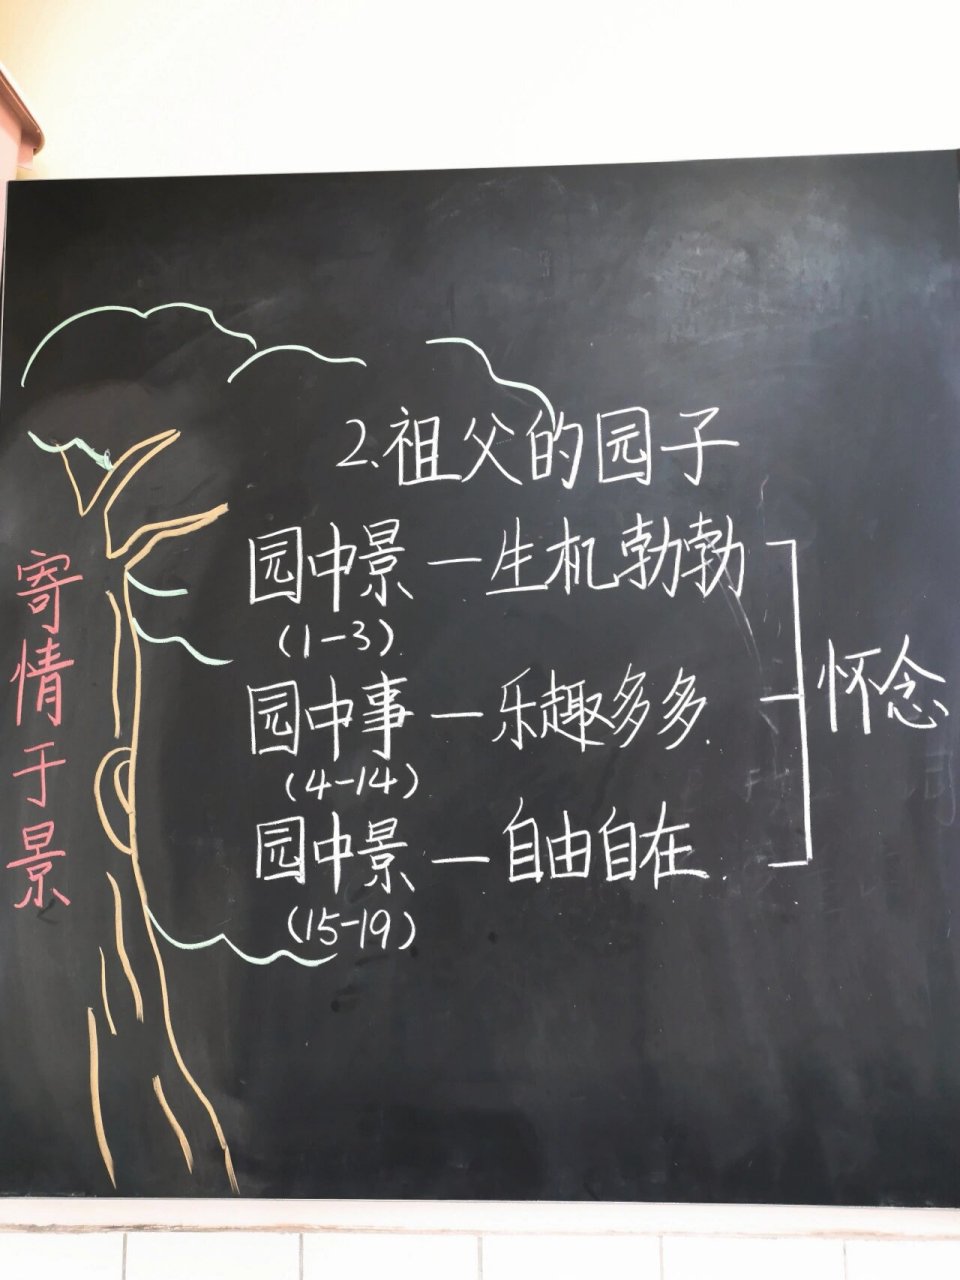 2.祖父的园子
园中景—生机勃勃
(1-3)
园中事—乐趣多多
(4-14)
园中景—自由自在
(15-19)
怀念
寄情于景